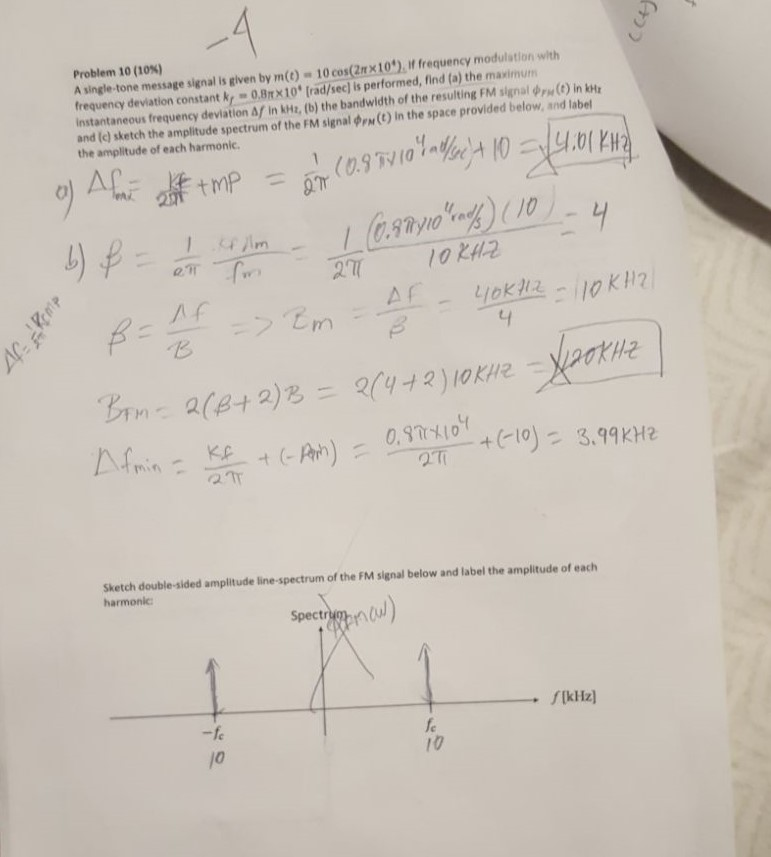 -4
Problem 10 (10%)
A single-tone message signal is given by m(t) = 10 cos(2π×10⁴). If frequency modulation with
frequency deviation constant k_f = 0.8π×10⁴ [rad/sec] is performed, find (a) the maximum
instantaneous frequency deviation Δf in kHz, (b) the bandwidth of the resulting FM signal ϕ_FM(t) in kHz
and (c) sketch the amplitude spectrum of the FM signal ϕ_FM(t) in the space provided below, and label
the amplitude of each harmonic.
a) Δf_max = kf/2π + mp = 1/2π (0.8π×10⁴ rad/sec) + 10 = 4.01 KHz
b) β = 1/2π kf Am/fm = 1/2π (0.8π×10⁴ rad/s)(10)/10 KHz = 4
Δf = 1/2π kf mp
β = Δf/B => Bm = Δf/β = 40KHz/4 = 10 KHz
BFM = 2(β+2)B = 2(4+2)10KHz = 120KHz
Δfmin = kf/2π + (-Am) = 0.8π×10⁴/2π + (-10) = 3.99KHz
Sketch double-sided amplitude line-spectrum of the FM signal below and label the amplitude of each
harmonic:
Spectrum
f [kHz]
-fc fc
10 10